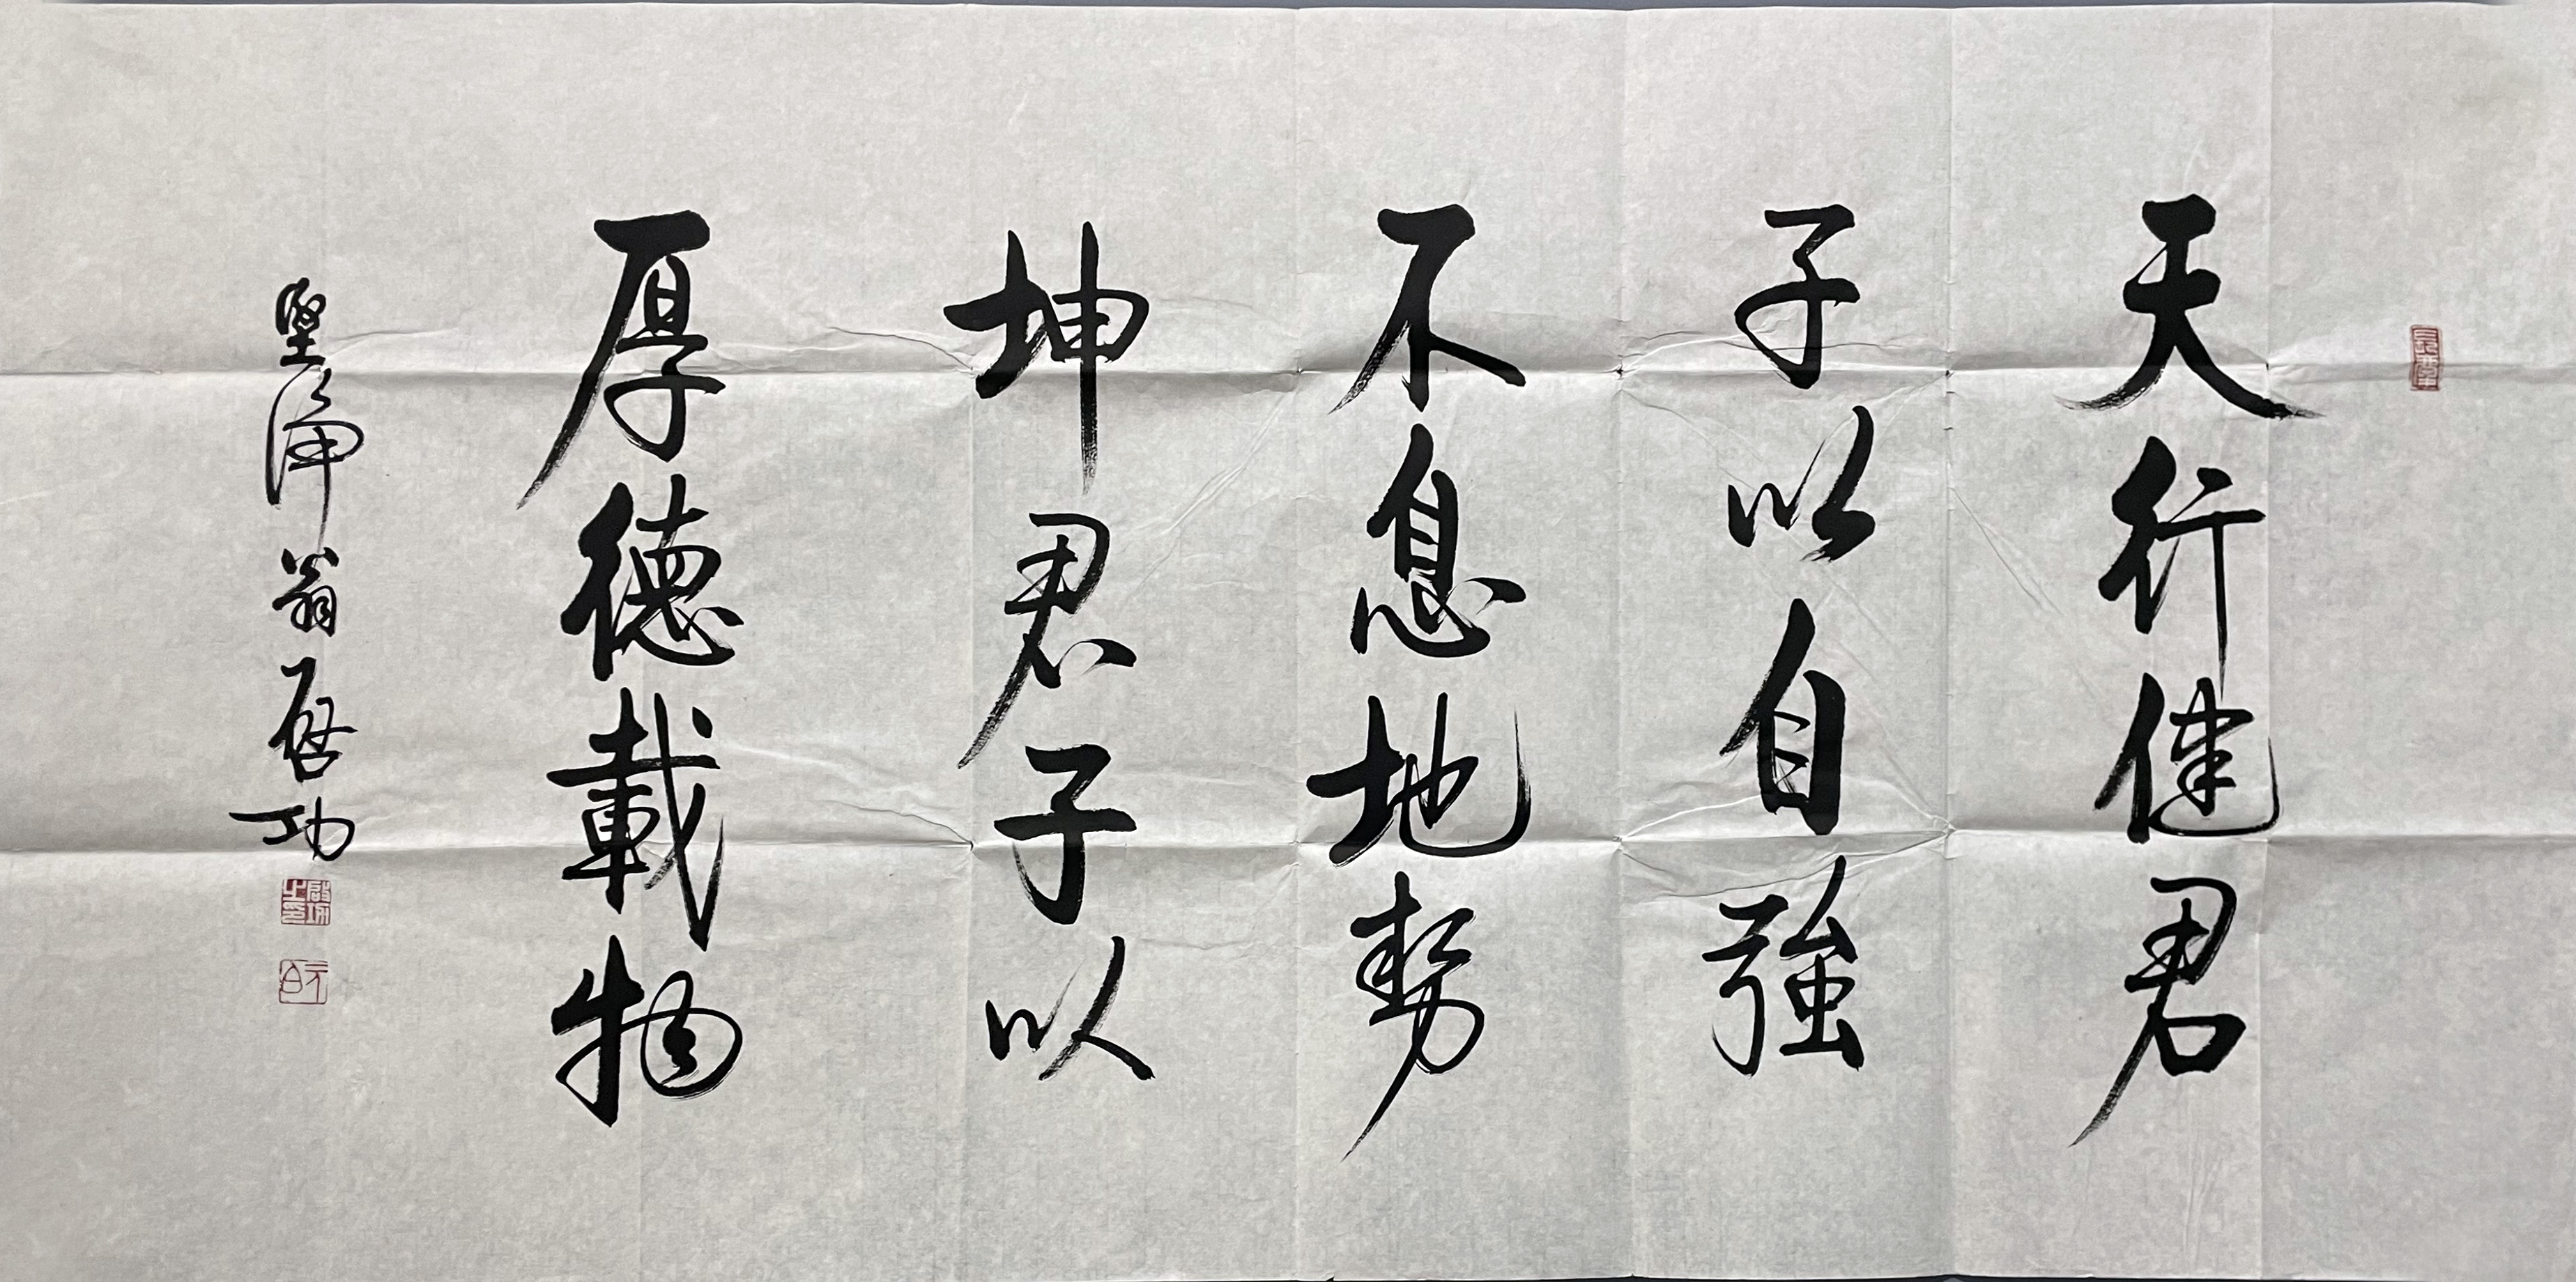 天行健君
子以自強
不息地勢
坤君子以
厚德載物
堅淨翁啓功
啟功之印
元白